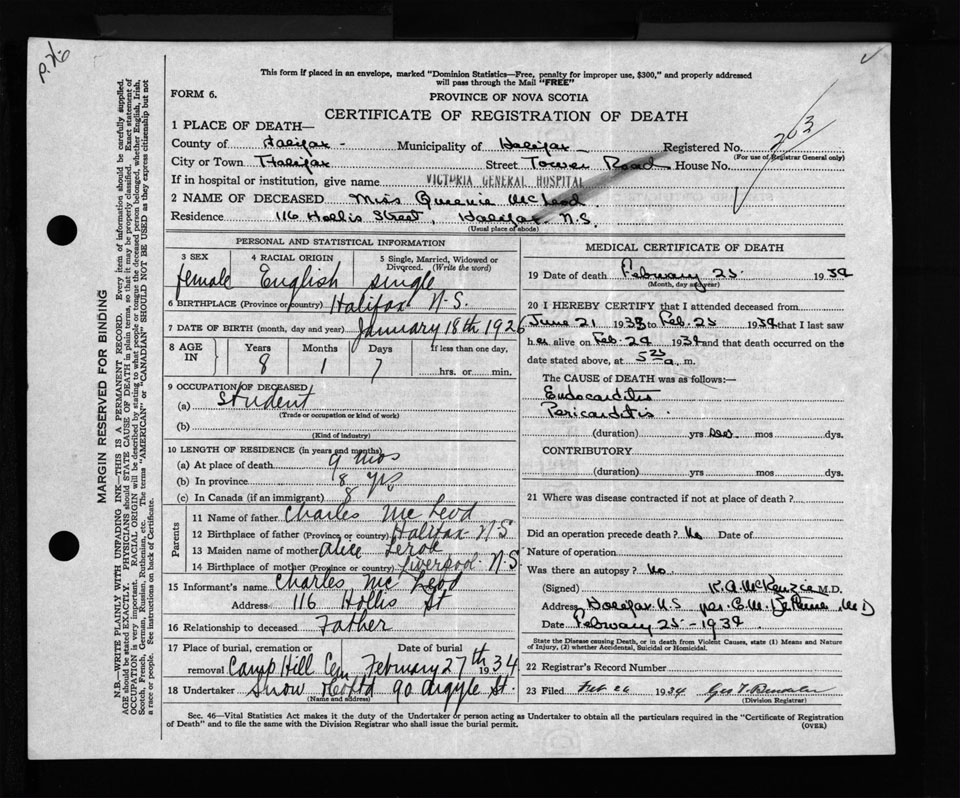 P. 76
This form if placed in an envelope, marked "Dominion Statistics—Free, penalty for improper use, $300," and properly addressed
will pass through the Mail "FREE"
FORM 6.
PROVINCE OF NOVA SCOTIA
CERTIFICATE OF REGISTRATION OF DEATH
203
1 PLACE OF DEATH—
County of Halifax - Municipality of Halifax Registered No.
(For use of Registrar General only)
City or Town Halifax Street Tower Road House No.
If in hospital or institution, give name VICTORIA GENERAL HOSPITAL
2 NAME OF DECEASED Miss Queenie McLeod
Residence 116 Hollis Street, Halifax N.S.
(Usual place of abode)
PERSONAL AND STATISTICAL INFORMATION
3 SEX 4 RACIAL ORIGIN 5 Single, Married, Widowed or
Divorced. (Write the word)
female English single
6 BIRTHPLACE (Province or country) Halifax N.S.
7 DATE OF BIRTH (month, day and year) January 18th 1926
8 AGE IN Years Months Days If less than one day,
8 1 7 hrs. or min.
9 OCCUPATION OF DECEASED
(a) Student
(Trade or occupation or kind of work)
(b)
(Kind of industry)
10 LENGTH OF RESIDENCE (in years and months)
(a) At place of death 9 mos
(b) In province 8 yrs
(c) In Canada (if an immigrant) 8
Parents
11 Name of father Charles Mc Leod
12 Birthplace of father (Province or country) Halifax N.S
13 Maiden name of mother Alice
14 Birthplace of mother (Province or country) Liverpool N.S
15 Informant's name Charles Mc Leod
Address 116 Hollis St
16 Relationship to deceased Father
17 Place of burial, cremation or Date of burial
removal Camp Hill Cem February 27th 1934
18 Undertaker Snow & Co Ltd 90 Argyle St.
(Name and address)
MEDICAL CERTIFICATE OF DEATH
19 Date of death February 25 1934
(Month, day and year)
20 I HEREBY CERTIFY that I attended deceased from
June 21 1933 to Feb. 25 1934 that I last saw
her alive on Feb. 24 1934 and that death occurred on the
date stated above, at 5 25 a. m.
The CAUSE of DEATH was as follows:—
Endocarditis
Pericarditis
(duration) yrs mos dys.
CONTRIBUTORY
(duration) yrs mos dys.
21 Where was disease contracted if not at place of death?
Did an operation precede death? No Date of
Nature of operation
Was there an autopsy? No
(Signed) K.A. McKenzie M.D.
Address Halifax N.S per MD
Date February 25 - 1934
State the Disease causing Death, or in death from Violent Causes, state (1) Means and Nature
of Injury, (2) whether Accidental, Suicidal or Homicidal.
22 Registrar's Record Number
23 Filed Feb 26 1934 Geo T.
(Division Registrar)
Sec. 46—Vital Statistics Act makes it the duty of the Undertaker or person acting as Undertaker to obtain all the particulars required in the "Certificate of Registration
of Death" and to file the same with the Division Registrar who shall issue the burial permit.
(OVER)
MARGIN RESERVED FOR BINDING
N.B.—WRITE PLAINLY WITH UNFADING INK—THIS IS A PERMANENT RECORD. Every item of information should be carefully supplied.
AGE should be stated EXACTLY. PHYSICIANS should STATE CAUSE OF DEATH in plain terms, so that it may be properly classified. Exact statement of
OCCUPATION is very important. RACIAL ORIGIN will be described by stating to what people or tongue the deceased person belonged, whether English, Irish,
Scotch, French, German, Russian, Ruthenian, etc. The terms "AMERICAN" or "CANADIAN" SHOULD NOT BE USED as they express citizenship but not
a race or people. See instructions on back of Certificate.